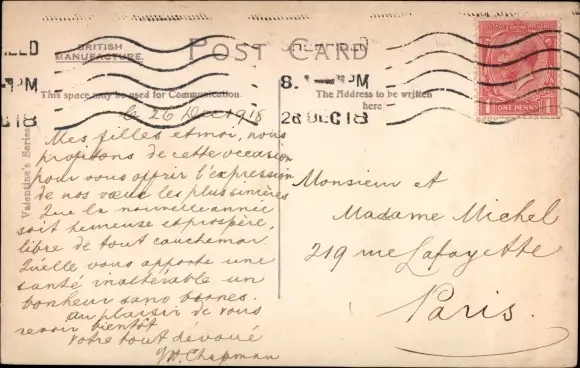 BRITISH
MANUFACTURE.
POST CARD
8. PM
26 DEC 18
ONE PENNY
This space may be used for Communication.
The Address to be written
here
Valentine's Series
le 26 Dec 1918
Mes filles et moi, nous
profitons de cette occasion
pour vous offrir l'expression
de nos vœux les plus sincères
Que la nouvelle année
soit heureuse et prospère,
libre de tout cauchemar
Qu'elle vous apporte une
santé inaltérable un
bonheur sans bornes.
au plaisir de vous
revoir bientôt
Votre tout dévoué
Chapman
Monsieur et
Madame Michel
219 rue Lafayette
Paris.